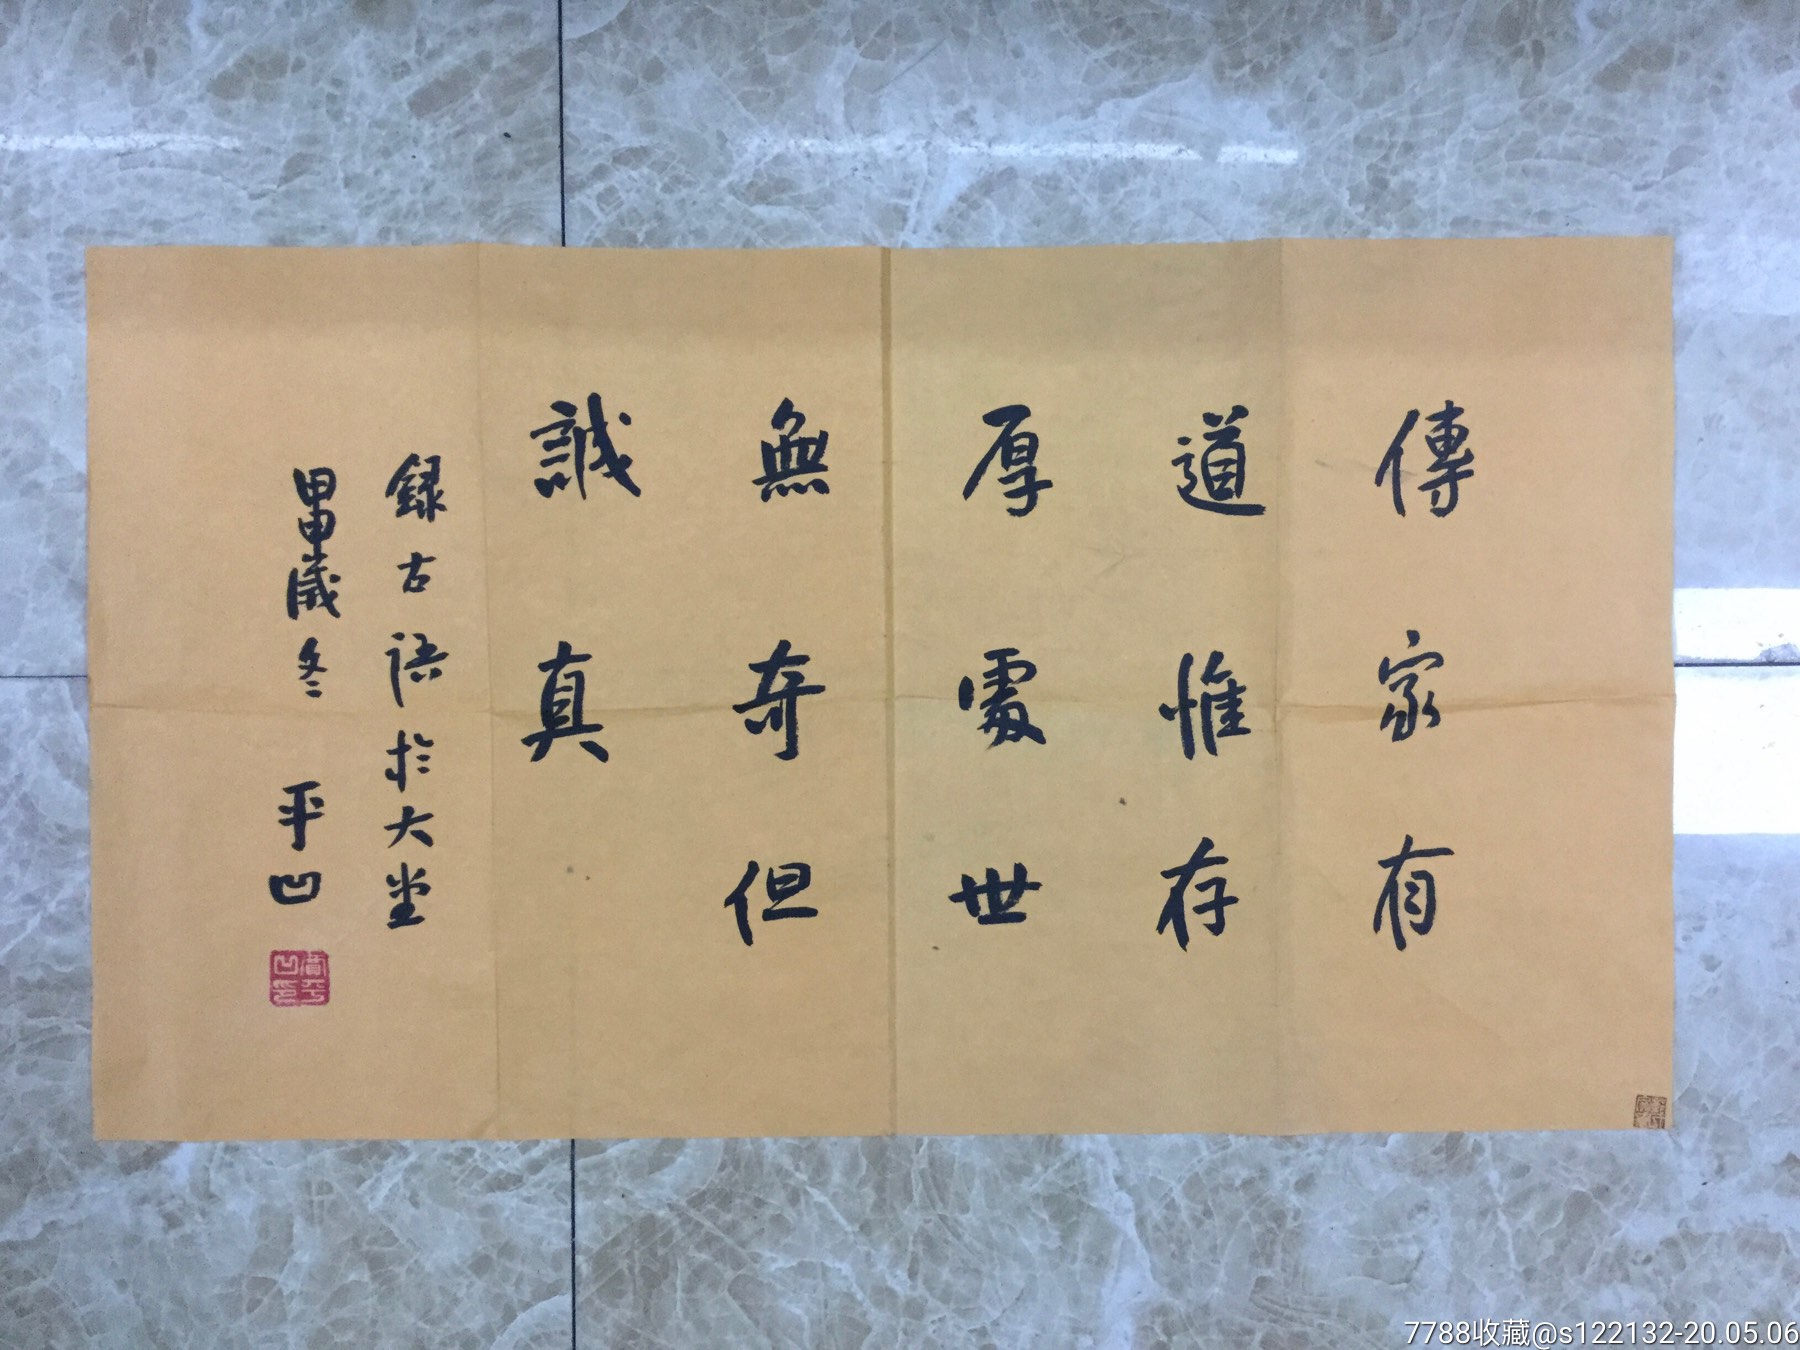 傳家有
道惟存
厚處世
無奇但
誠真
録古語於大堂
甲申歲冬 平凹
賈平凹印
7788收藏@s122132-20.05.06